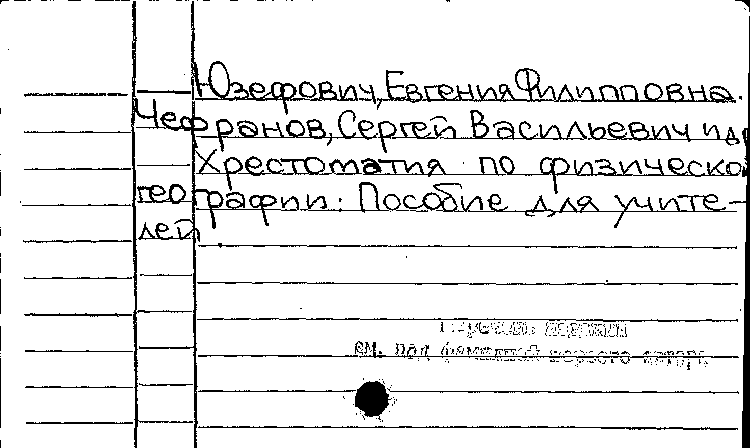 Юзефович, Евгения Филипповна.
Чефранов, Сергей Васильевич и др
Хрестоматия по физическо
географии: Пособие для учите-
лей.
см. под фамилией первого автора